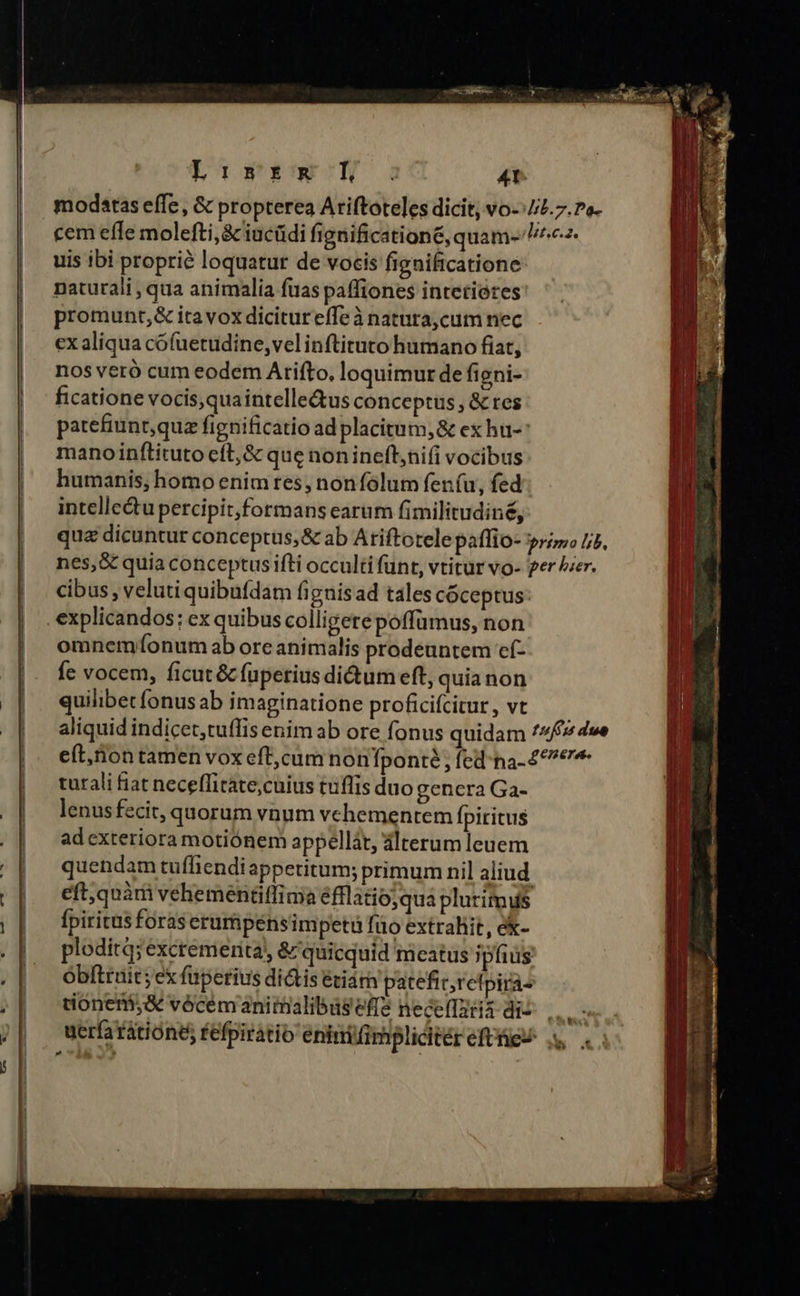 LIBER I. 41
modatas esse, & propterea Aristoteles dicit, vo- lib.7.Po-
cem esse molesti, & iucūdi significationē, quam- lit.c.2.
uis ibi propriè loquatur de vocis significatione
naturali, qua animalia suas passiones interiores
promunt, & ita vox dicitur esse à natura, cum nec
ex aliqua cōsuetudine, vel instituto humano fiat,
nos verò cum eodem Aristo. loquimur de signi-
ficatione vocis, qua intellectus conceptus, & res
patefiunt, quæ significatio ad placitum, & ex hu-
mano instituto est, & quę non inest, nisi vocibus
humanis, homo enim res, non solum sensu, sed
intellectu percipit, formans earum similitudinē,
quæ dicuntur conceptus, & ab Aristotele passio- primo lib.
nes, & quia conceptus isti occulti sunt, vtitur vo- per hier.
cibus, veluti quibusdam signis ad tales cōceptus
explicandos: ex quibus colligere possumus, non
omnem sonum ab ore animalis prodeuntem es-
se vocem, sicut & superius dictum est, quia non
quilibet sonus ab imaginatione proficiscitur, vt
aliquid indicet, tussis enim ab ore sonus quidam tussis due
est, non tamen vox est, cum non spontè, sed na- genera.
turali fiat necessitate, cuius tussis duo genera Ga-
lenus fecit, quorum vnum vehementem spiritus
ad exteriora motionem appellat, alterum leuem
quendam tussiendi appetitum; primum nil aliud
est, quàm vehementissima efflatio, qua plurimus
spiritus foras erumpens impetu suo extrahit, ex-
ploditq; excrementa, & quicquid meatus ipsius
obstruit; ex superius dictis etiam patefit, respira-
tionem, & vocem animalibus esse necessaria di-
uersa ratione; respiratio enim simpliciter est ne-